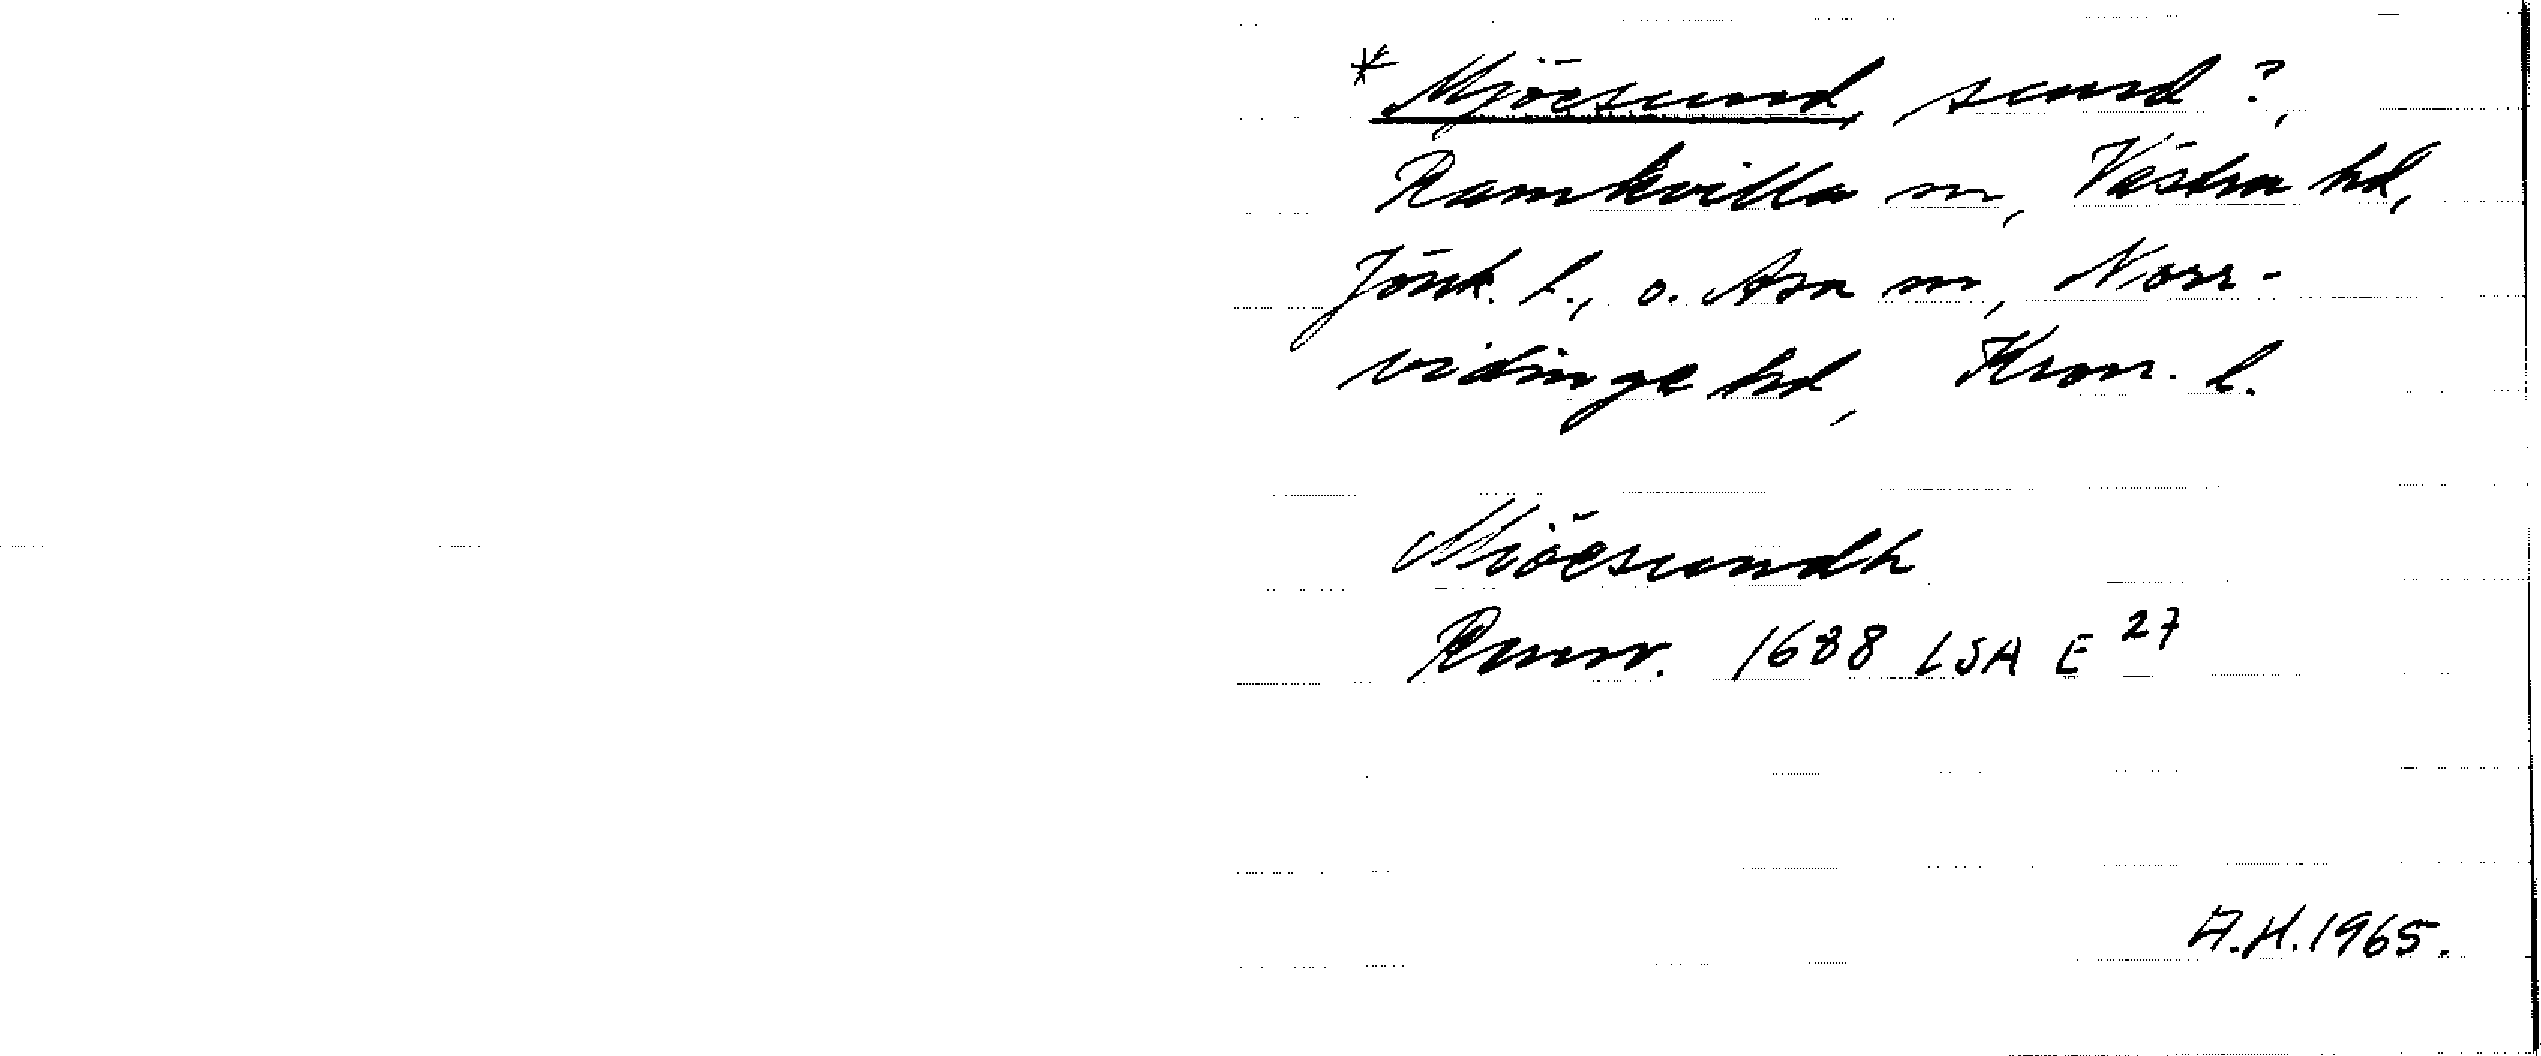 * Mjöesund, sund ?,
Ramkvilla sn, Västra hd,
Jönk. l., o. Asa sn, Norr-
vidinge hd, Kron. l.
Miöesundh
Rannr. 1688 LSA E 27
A.H. 1965.